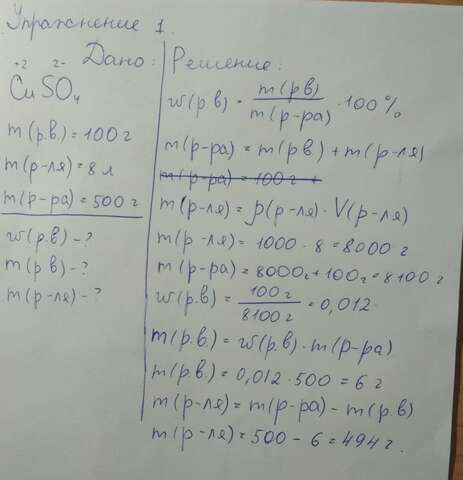 Упражнение 1.
Дано:
+2 2-
CuSO₄
m(р.в.) = 100 г
m(р-ля) = 8 л
m(р-ра) = 500 г
w(р.в) - ?
m(р.в) - ?
m(р-ля) - ?
Решение:
w(р.в) = m(рв) / m(р-ра) · 100 %
m(р-ра) = m(рв.) + m(р-ля)
m(р-ра) = 100 г +
m(р-ля) = ρ(р-ля) · V(р-ля)
m(р-ля) = 1000 · 8 = 8000 г
m(р-ра) = 8000г + 100г = 8100 г
w(р.в) = 100 г / 8100 г = 0,012
m(р.в.) = w(р.в) · m(р-ра)
m(р.в.) = 0,012 · 500 = 6 г
m(р-ля) = m(р-ра) - m(р.в)
m(р-ля) = 500 - 6 = 494 г.